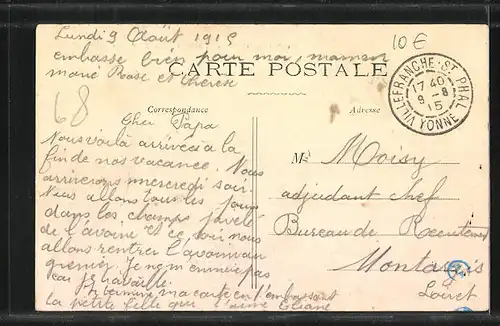 Lundi 9 Août 1915
embrasse bien pour moi, maman
marie Rose et therese
10€
CARTE POSTALE
VILLEFRANCHE-ST PHAL
17 40
9 - 8
15
YONNE
68
Correspondance
Adresse
Cher Papa
Nous voilà arrivées à la
fin de nos vacance. Nous
arriverons mercredi soir.
Nous allons tous les jours
dans les champs javelé
de l'avoine et ce soir nous
allons rentrer l'avoine au
grenier. Je ne m'ennuie pas
car je travaille.
Je termine ma carte en t'embrassant
la petite fille qui t'aime Eliane
Mr Moisy
adjudant chef
Bureau de Recrutement
Montargis
Loiret